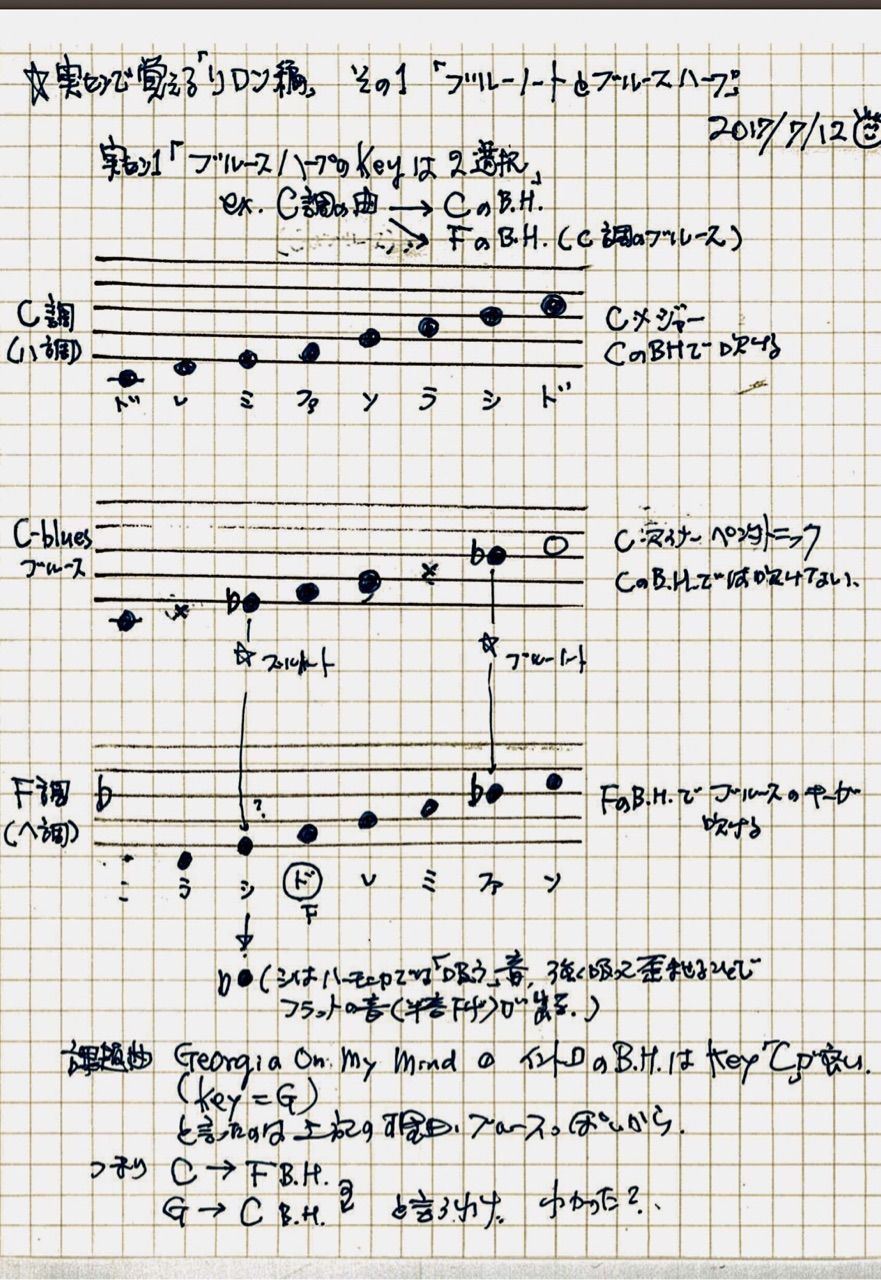 ☆実センで覚える「リロン編」 その1 「ブルーノートとブルースハープ」
2017/7/12
実セン1「ブルースハープのKeyは2選択」
ex. C調の曲 → CのB.H.
→ FのB.H. (C調のブルース)
C調
(ハ調)
Cメジャー
CのBHで吹ける
ド レ ミ ファ ソ ラ シ ド
C-blues
ブルース
× b × b
Cマイナー ペンタトニック
CのB.H.では吹けない、
☆ ブルーノート ☆ ブルーノート
F調
(ヘ調)
b ? b
FのB.H.で ブルースのキーが
吹ける
ラ シ ド レ ミ ファ ソ
F
b (シはハーモニカでは「吸う」音、強く吸って歪ませることで
フラットの音(半音下げ)が出る.)
課題曲 Georgia On My Mind の イントロのB.H.は Key「C」が良い.
(Key=G)
と言ったのは上記の理由.ブルースっぽいから.
つまり C → F B.H.
G → C B.H. と言うわけ. わかった?